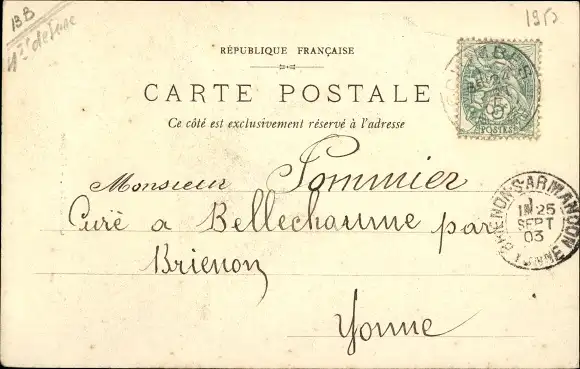 BB
RÉPUBLIQUE FRANÇAISE
CARTE POSTALE
Ce côté est exclusivement réservé à l'adresse
5
POSTES
Monsieur Pommier
Curé a Bellechaume par
Brienon
Yonne
BRIENON-S-ARMANÇON
YONNE
25
SEPT
03